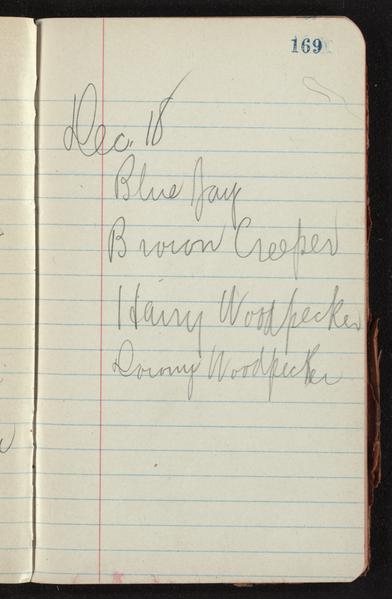 169
Dec. 18
Blue Jay
Brown Creeper
Hairy Woodpecker
Downy Woodpecker